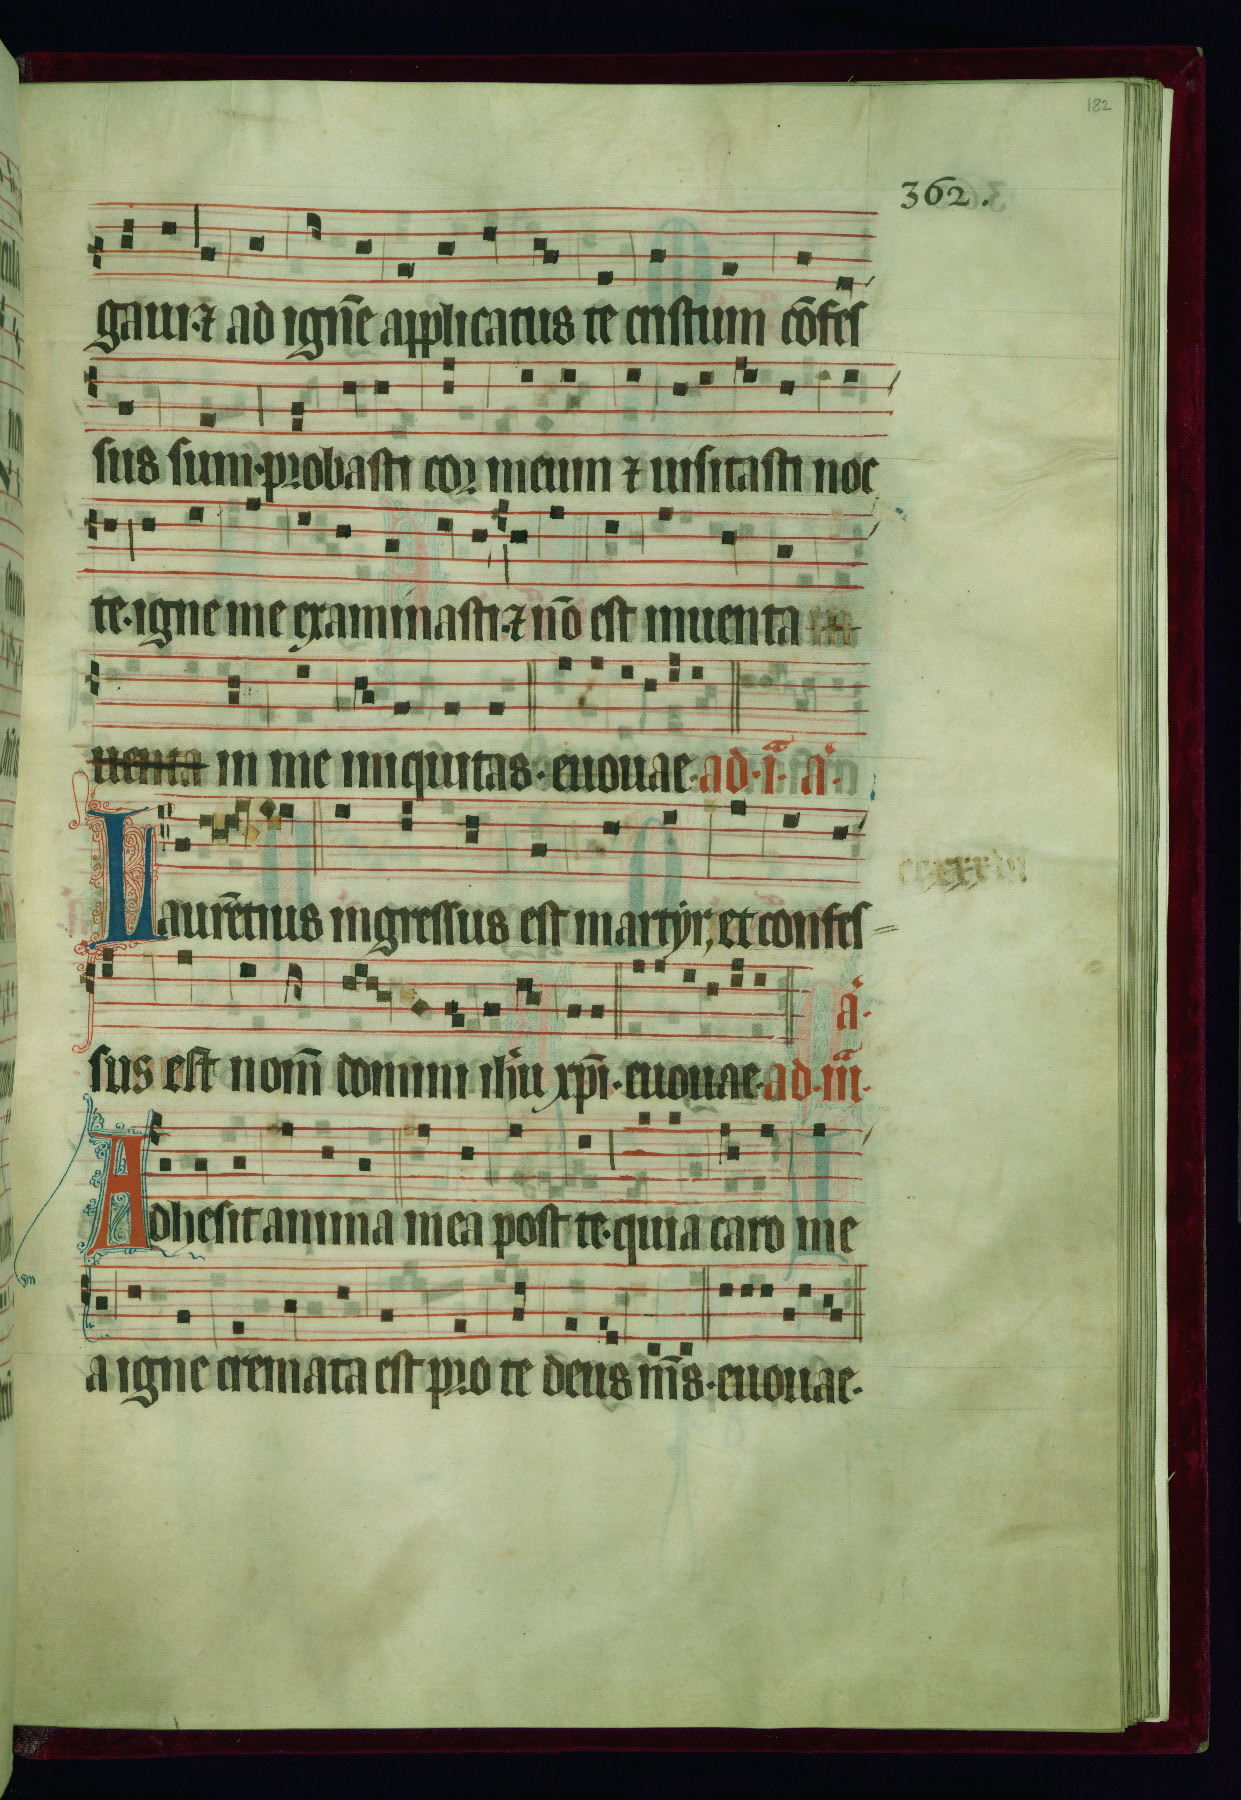 182
362.
gaui·⁊ ad ignē applicatus te cristum cōfes
sus sum·probasti cor meum ⁊ uisitasti noc
te·igne me examinasti·⁊ nō est inuenta
uenta in me iniquitas· euouae· ad·i· a·
Laurētius ingressus est martyr, et confes=
a·
sus est nom̄ domini ihū xp̄i· euouae· ad·iii·
Adhesit anima mea post te·quia caro me
a igne cremata est pro te deus m̄s· euouae·